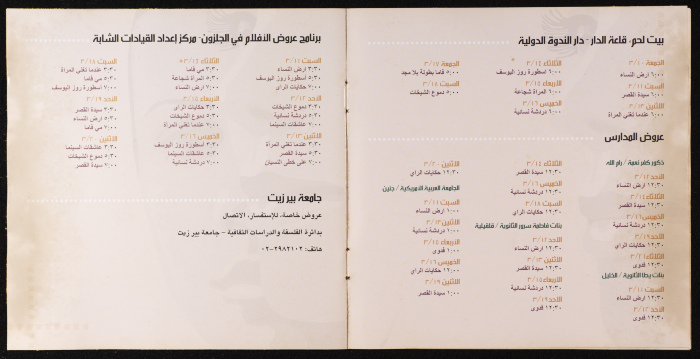 بيت لحم: قاعة الدار - دار الندوة الدولية
الجمعة ٣/١٠
٦:٠٠ ارض النساء
السبت ٣/١١
٦:٠٠ سيدة القصر
الاثنين ٣/١٣
٦:٠٠ عندما تغني المرأة
الثلاثاء ٣/١٤
٦:٠٠ اسطورة روز اليوسف
الاربعاء ٣/١٥
٦:٠٠ امرأة شجاعة
الخميس ٣/١٦
٦:٠٠ دردشة نسائية
الجمعة ٣/١٧
٥:٠٠ فاما بطولة بلا مجد
السبت ٣/١٨
٥:٠٠ دموع الشيخات
عروض المدارس
ذكور كفر نعمة / رام الله
الاحد ٣/١٢
١٢:٣٠ ارض النساء
الثلاثاء ٣/١٤
١٢:٣٠ سيدة القصر
الخميس ٣/١٦
١٢:٣٠ دردشة نسائية
الاحد ٣/١٩
١٢:٣٠ حكايات الراي
الثلاثاء ٣/٢١
١٢:٣٠ فدوى
بنات يطا الثانوية / الخليل
السبت ٣/١١
١٢:٣٠ ارض النساء
الاحد ٣/١٢
١٢:٣٠ فدوى
الثلاثاء ٣/١٤
١٢:٣٠ سيدة القصر
الخميس ٣/١٦
١٢:٣٠ دردشة نسائية
السبت ٣/١٨
١٢:٣٠ حكايات الراي
بنات فاطمة سرور الثانوية / قلقيلية
الاحد ٣/١٢
١٢:٣٠ ارض النساء
الاثنين ٣/١٣
١٢:٣٠ سيدة القصر
الاربعاء ٣/١٥
١٢:٣٠ دردشة نسائية
الاحد ٣/١٩
١٢:٣٠ فدوى
الاثنين ٣/٢٠
١٢:٣٠ حكايات الراي
الجامعة العربية الامريكية / جنين
السبت ٣/١١
١:٠٠ ارض النساء
الاثنين ٣/١٣
١:٠٠ دردشة نسائية
الاربعاء ٣/١٥
١:٠٠ فدوى
الخميس ٣/١٦
١٢:٠٠ حكايات الراي
الاثنين ٣/١٩
١:٠٠ سيدة القصر
برنامج عروض الافلام في الجلزون: مركز اعداد القيادات الشابة
السبت ٣/١١
٣:٣٠ ارض النساء
٥:٣٠ اسطورة روز اليوسف
٧:٠٠ حكايات الراي
الاحد ٣/١٢
٣:٣٠ دموع الشيخات
٥:٣٠ دردشة نسائية
٧:٠٠ عاشقات السينما
الاثنين ٣/١٣
٣:٣٠ عندما تغني المرأة
٥:٣٠ سيدة القصر
٧:٠٠ على خطى النسيان
الثلاثاء ٣/١٤
٣:٣٠ مي فاما
٥:٣٠ امرأة شجاعة
٧:٠٠ ارض النساء
الاربعاء ٣/١٥
٣:٣٠ حكايات الراي
٥:٣٠ دموع الشيخات
٧:٠٠ عندما تغني المرأة
الخميس ٣/١٦
٣:٣٠ اسطورة روز اليوسف
٥:٣٠ عاشقات السينما
٧:٠٠ دردشة نسائية
السبت ٣/١٨
٣:٣٠ عندما تغني المرأة
٥:٣٠ مي فاما
٧:٠٠ أسطورة روز اليوسف
الاحد ٣/١٩
٣:٣٠ سيدة القصر
٥:٣٠ ارض النساء
٧:٠٠ مي فاما
الاثنين ٣/٢٠
٣:٣٠ عاشقات السينما
٥:٣٠ دموع الشيخات
٧:٠٠ سيدة القصر
جامعة بير زيت
عروض خاصة، للإستفسار، الاتصال
بدائرة الفلسفة والدراسات الثقافية - جامعة بير زيت
هاتف: ٢٩٨٢١٠٢-٠٢